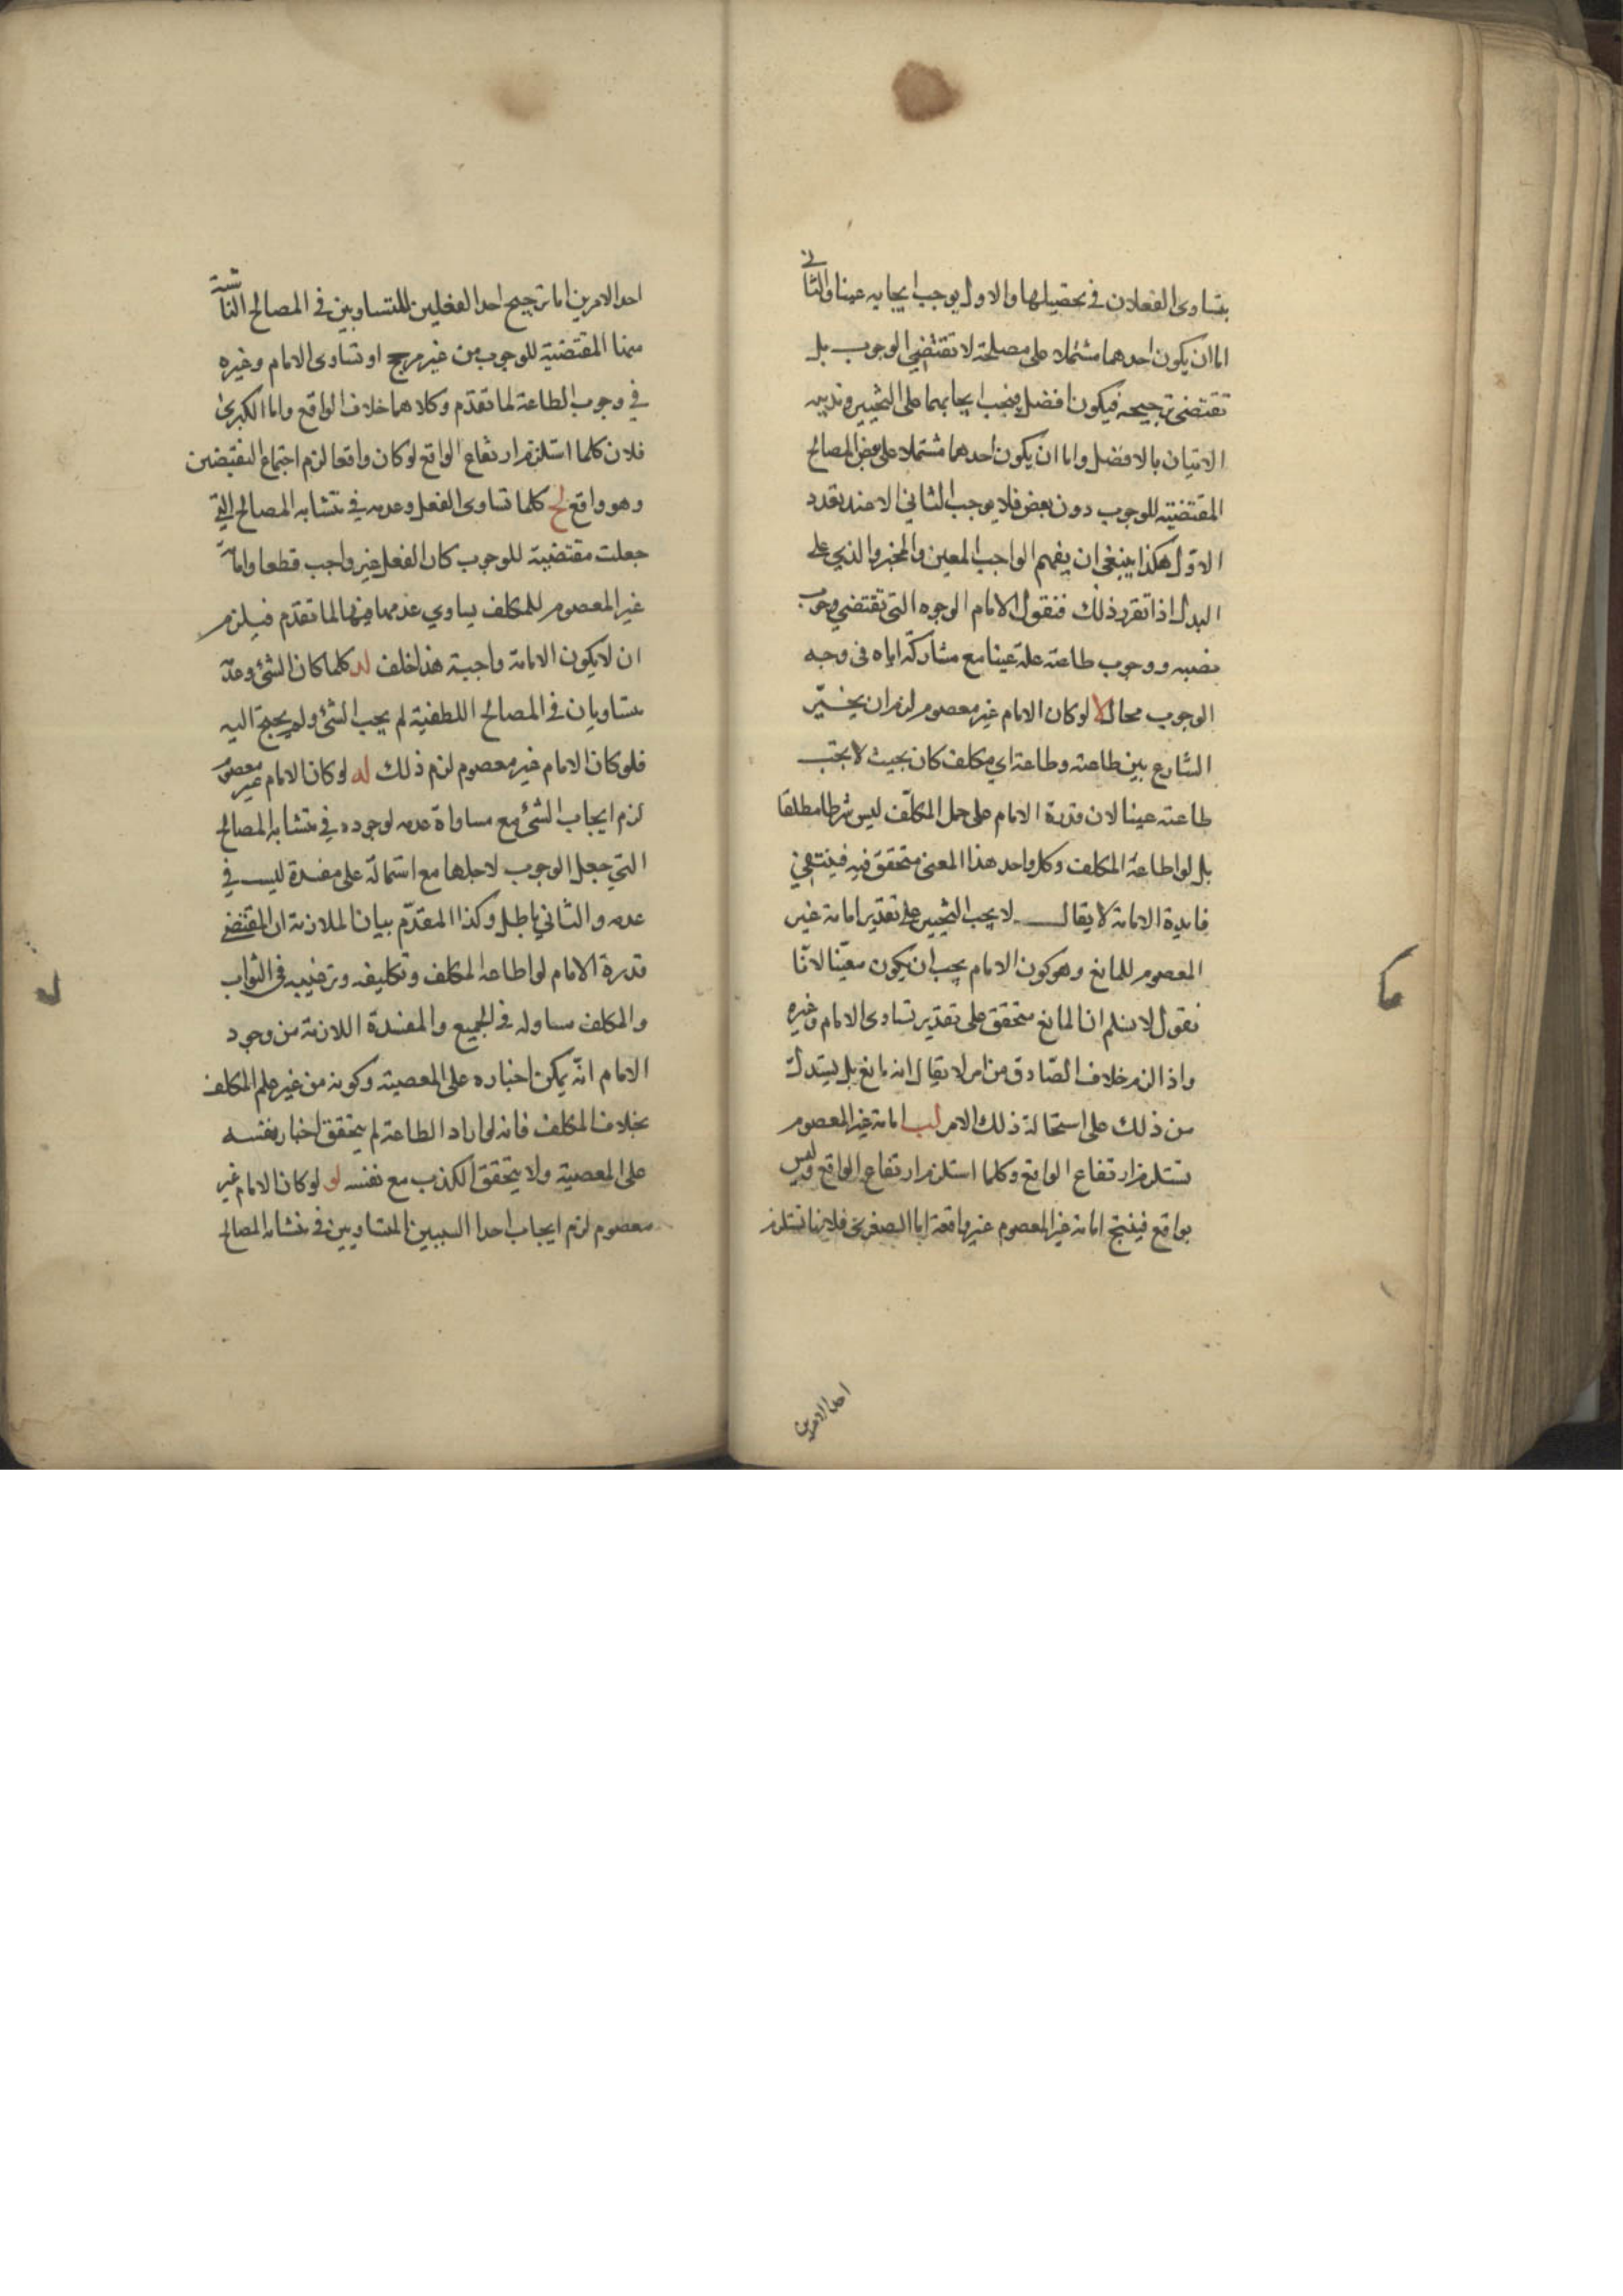 يتساوى الفعلان في تحصيلها والاول يوجب ايجابه عينا والثاني
اما ان يكون احدهما مشتملا على مصلحة لا تقتضي الوجوب بل
تقتضى ترجيحه فيكون افضل فيجب ايجابهما على التخيير وندبية
الاتيان بالافضل واما ان يكون احدهما مشتملا على بعض المصالح
المقتضية للوجوب دون بعض فلا يوجب الثاني الا عند تعذر
الاول هكذا ينبغي ان يفهم الواجب المعين والمخير والذي على
البدل اذا تقرر ذلك فنقول الامام الوجوه التى تقتضي وجوب
نصبه ووجوب طاعته علة عينا مع مشاركة اياه فى وجه
الوجوب محال لا لو كان الامام غير معصوم لزم ان يخيّر
الشارع بين طاعته وطاعة اي مكلف كان بحيث لا يجب
طاعته عينا لان قدرة الامام على حمل المكلّف ليس شرطا مطلقا
بل لو اطاعه المكلف وكل واحد هذا المعنى متحقق فيه فينتفي
فايدة الامامة لا يقال لا يجب التخيير على تقدير امامة غير
المعصوم للمانع وهو كون الامام يجب ان يكون معيّنا لانّا
نقول لا نسلم ان المانع متحقق على تقدير تساوى الامام وغيره
واذا لزم خلاف الصّادق من امر لا يقال انه مانع بل يستدل
من ذلك على استحالة ذلك الامر لب امامة غير المعصوم
تستلزم ارتفاع الواقع وكلما استلزم ارتفاع الواقع وليس
بواقع فينتج امامة غير المعصوم غير واقعة اما الصغرى فلانها تستلزم
احد الامرين
احد الامرين اما ترجيح احد الفعلين المتساويين في المصالح الناشئة
منها المقتضية للوجوب من غير مرجح او تساوى الامام وغيره
في وجوب الطاعة لما تقدّم وكلاهما خلاف الواقع واما الكبرى
فلان كلما استلزم ارتفاع الواقع لو كان واقعا لزم اجتماع النقيضين
وهو واقع لج كلما تساوى الفعل وعدمه في تشابه المصالح التي
جعلت مقتضية للوجوب كان الفعل غير واجب قطعا وامامة
غير المعصوم للمكلف يساوي عدمها فيها لما تقدّم فيلزم
ان لا يكون الامامة واجبة هذا خلف لد كلما كان الشئ وعدمه
متساويان في المصالح اللطفية لم يجب الشئ ولم يحتج اليه
فلو كان الامام غير معصوم لزم ذلك له لو كان الامام غير معصوم
لزم ايجاب الشئ مع مساواة عدمه لوجوده في تشابه المصالح
التي جعل الوجوب لاجلها مع اشتماله على مفسدة ليست في
عدمه والثاني باطل وكذا المقدّم بيان الملازمة ان المقتضي
قدرة الامام لو اطاعه المكلف وتكليفه وترغيبه فى الثواب
والمكلف مساو له في الجميع والمفسدة اللازمة من وجود
الامام انّه يمكن اجباره على المعصية وكونه من غير علم المكلف
بخلاف المكلف فانه لو اراد الطاعة لم يتحقق اجبار نفسه
على المعصية ولا يتحقق الكذب مع نفسه لو لو كان الامام غير
معصوم لزم ايجاب احد السببين المتساويين في تشابه المصالح